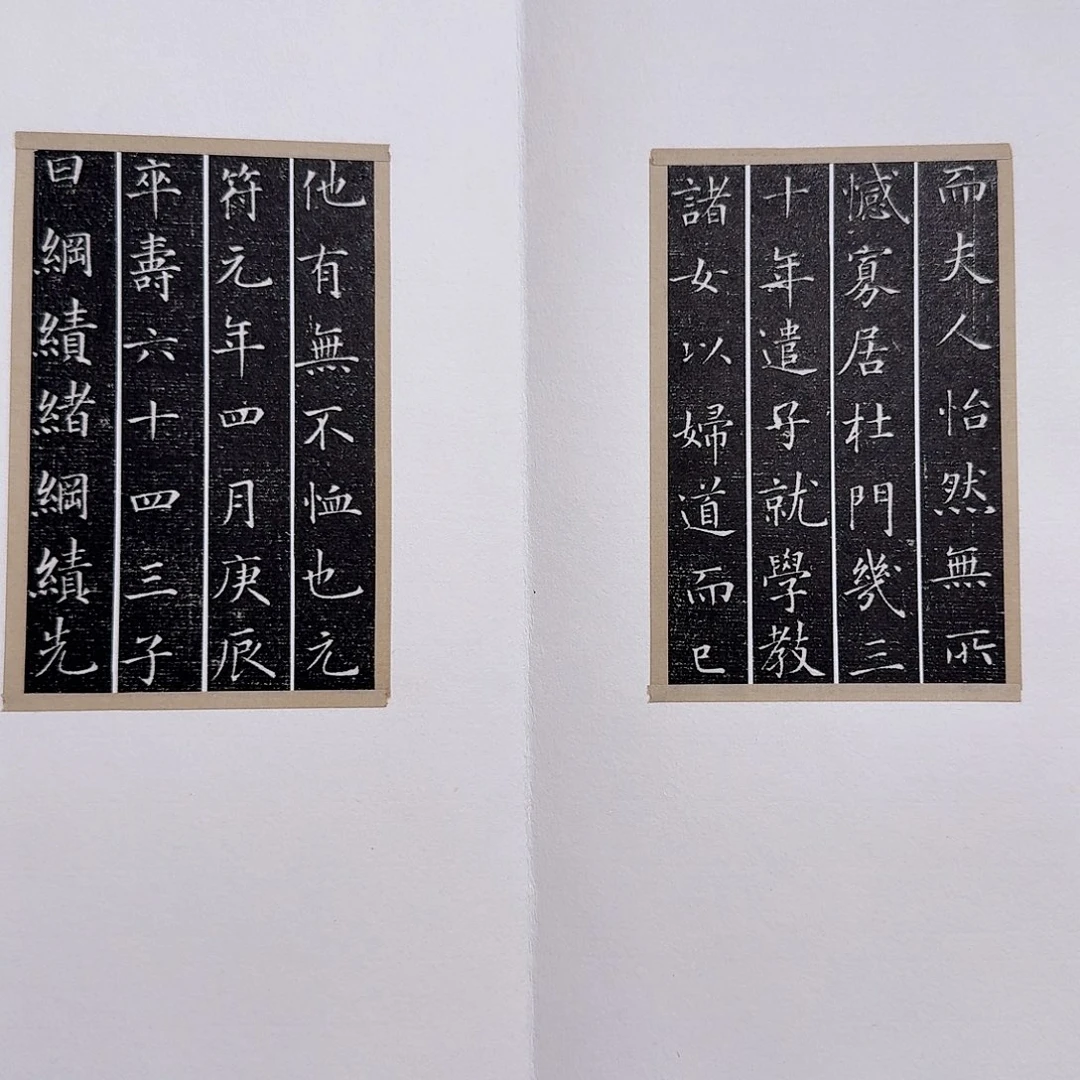 而夫人怡然無所
憾寡居杜門幾三
十年遣子就學教
諸女以婦道而已
他有無不恤也元
符元年四月庚辰
卒壽六十四三子
曰綱績緒綱績先